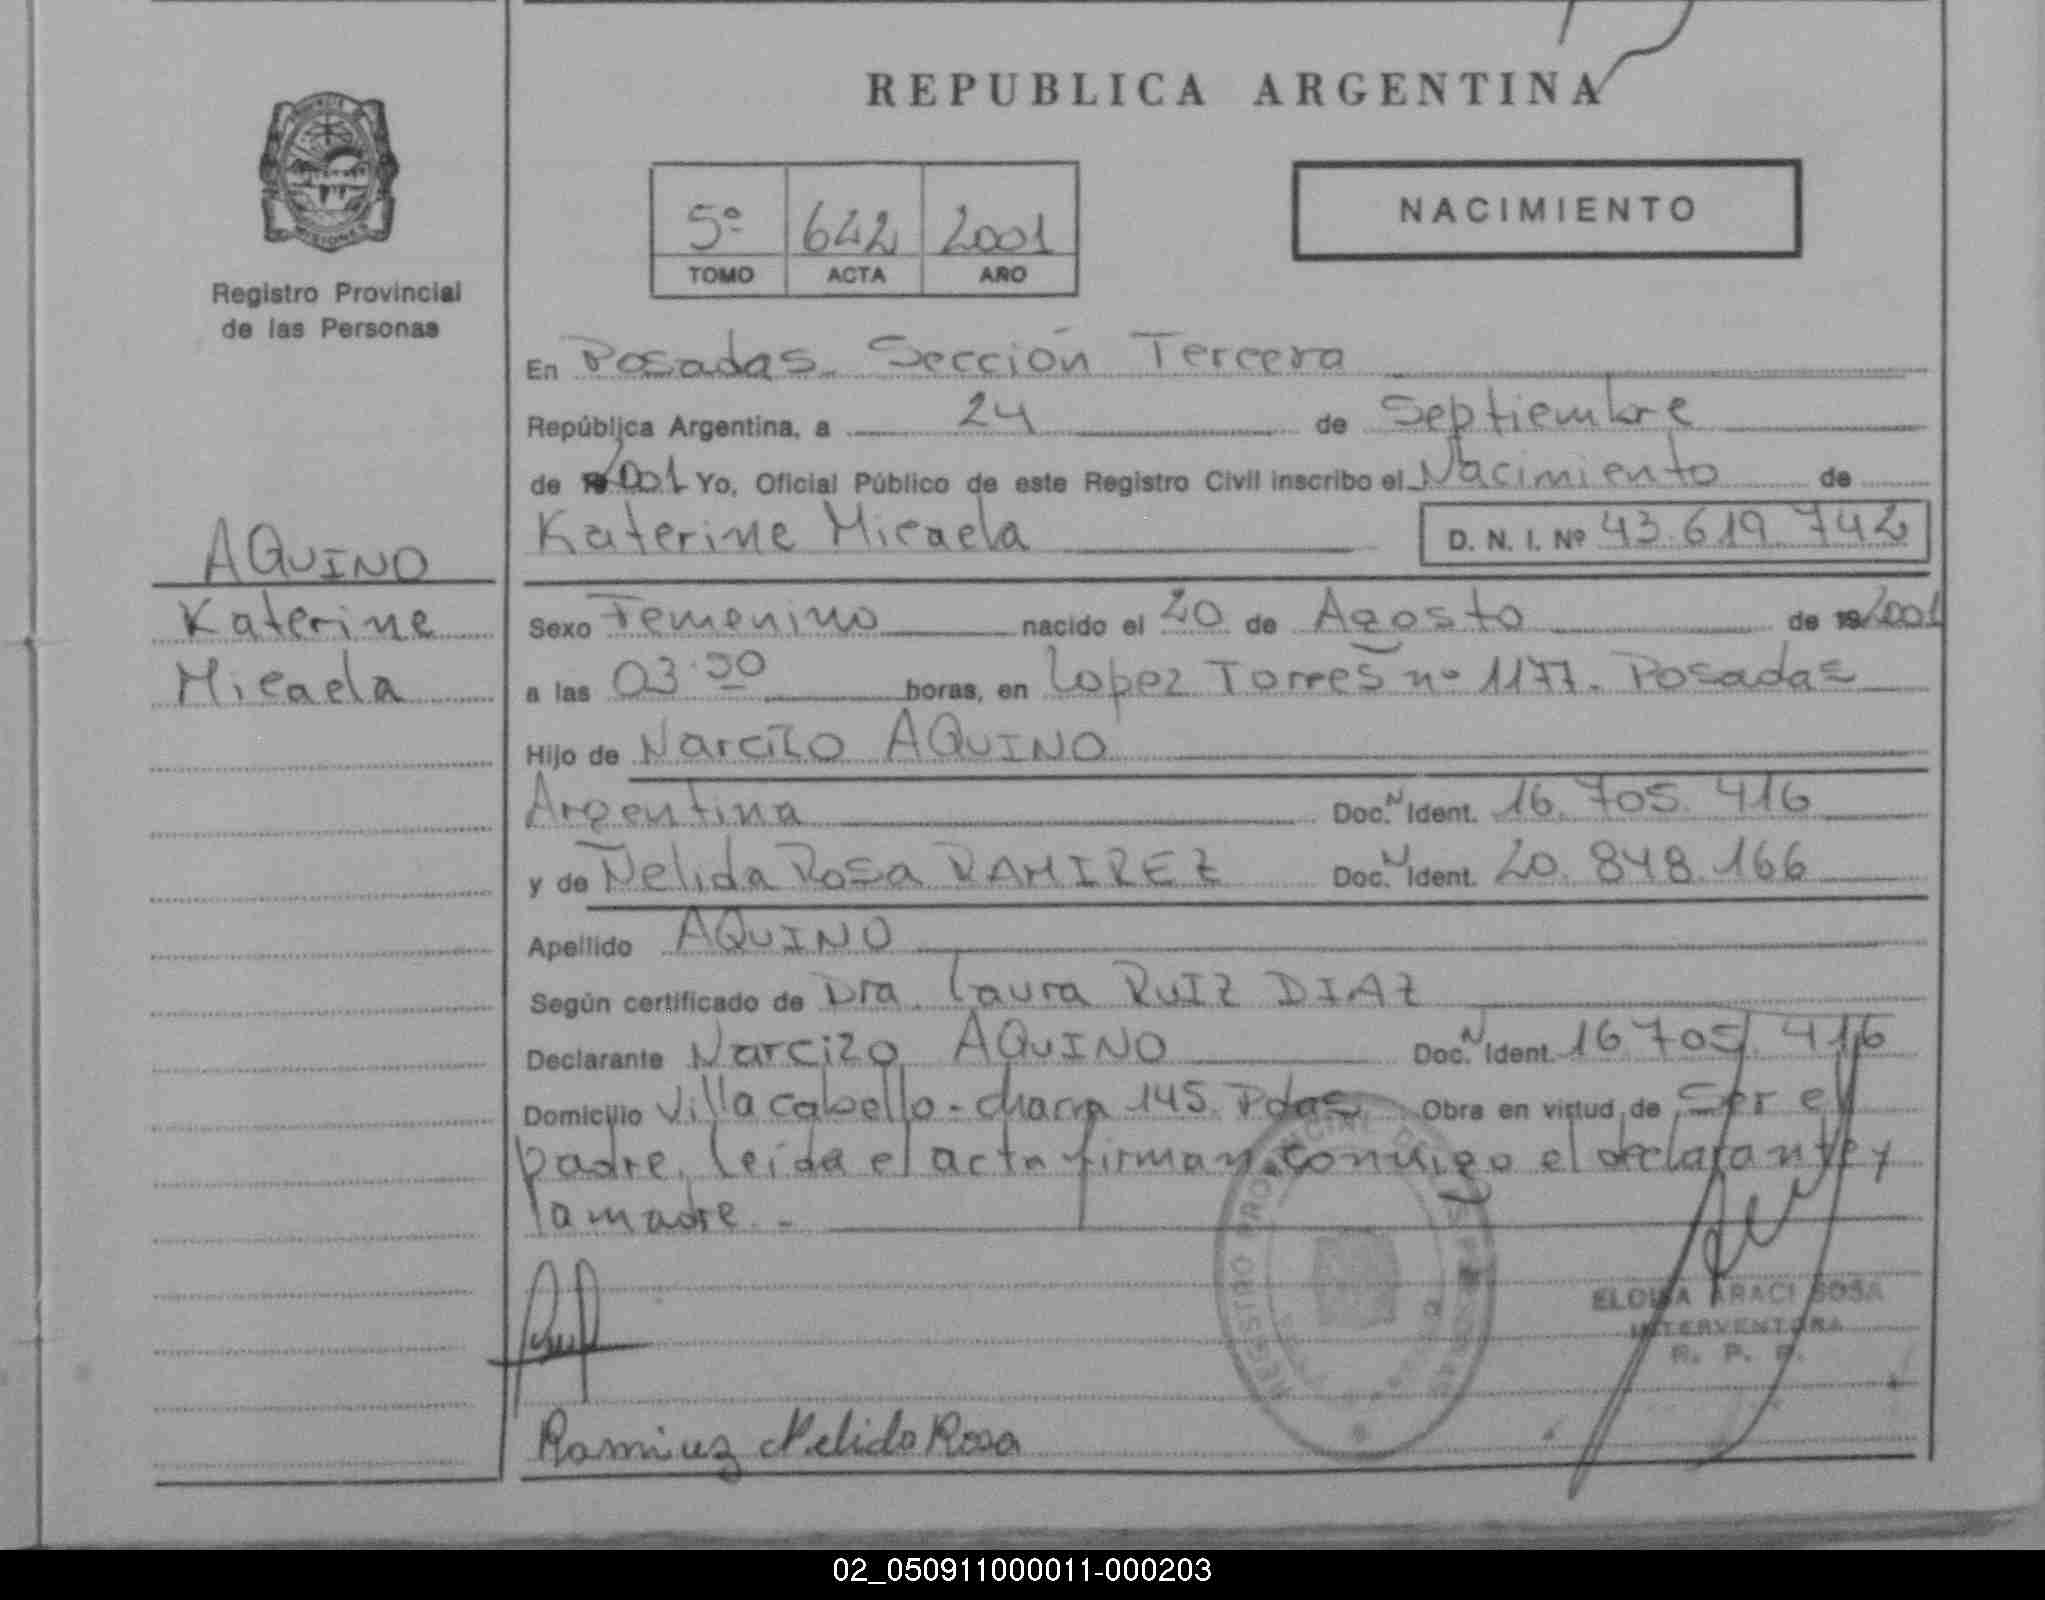 REPUBLICA ARGENTINA
MISIONES
Registro Provincial
de las Personas
5º 642 2001
TOMO ACTA AÑO
NACIMIENTO
AQUINO
Katerine
Micaela
En Posadas. Sección Tercera
República Argentina, a 24 de Septiembre
de 2001 Yo, Oficial Público de este Registro Civil inscribo el Nacimiento de
Katerine Micaela D. N. I. Nº 43.619.742
Sexo Femenino nacido el 20 de Agosto de 2001
a las 03 horas, en Lopez Torres nº 1177. Posadas
Hijo de Narcizo AQUINO
Argentina Doc. N Ident. 16.705.416
y de Nelida Rosa RAMIREZ Doc. N Ident. 20.848.166
Apellido AQUINO
Según certificado de Dra. Laura RUIZ DIAZ
Declarante Narcizo AQUINO Doc. N Ident. 16 705. 416
Domicilio Villa cabello - chacra 145. Pdas. Obra en virtud de Ser el
padre. Leída el acta firman conmigo el declarante y
la madre. -
REGISTRO PROVINCIAL DE LAS PERSONAS
ELOISA ARACI SOSA
INTERVENTORA
R. P. P.
Ramirez Nelida Rosa
02_050911000011-000203